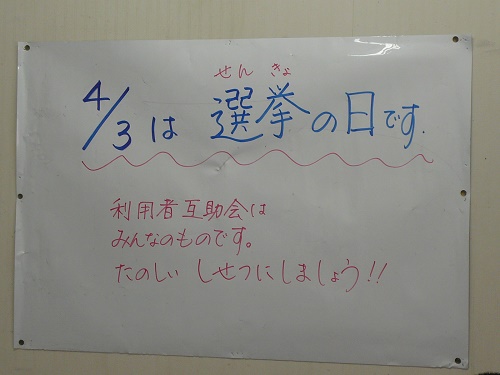 せんきょ
4/3は 選挙の日です.
利用者互助会は
みんなのものです。
たのしい しせつにしましょう!!